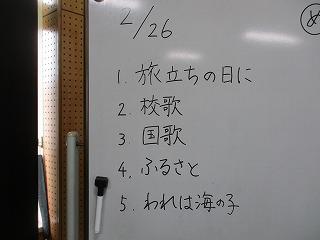 2/26
め
1. 旅立ちの日に
2. 校歌
3. 国歌
4. ふるさと
5. われは海の子